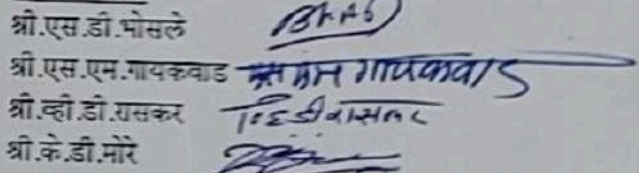 श्री.एस.डी.भोसले
श्री.एस.एम.गायकवाड एस एम गायकवाड
श्री.व्ही.डी.रासकर
श्री.के.डी.मोरे